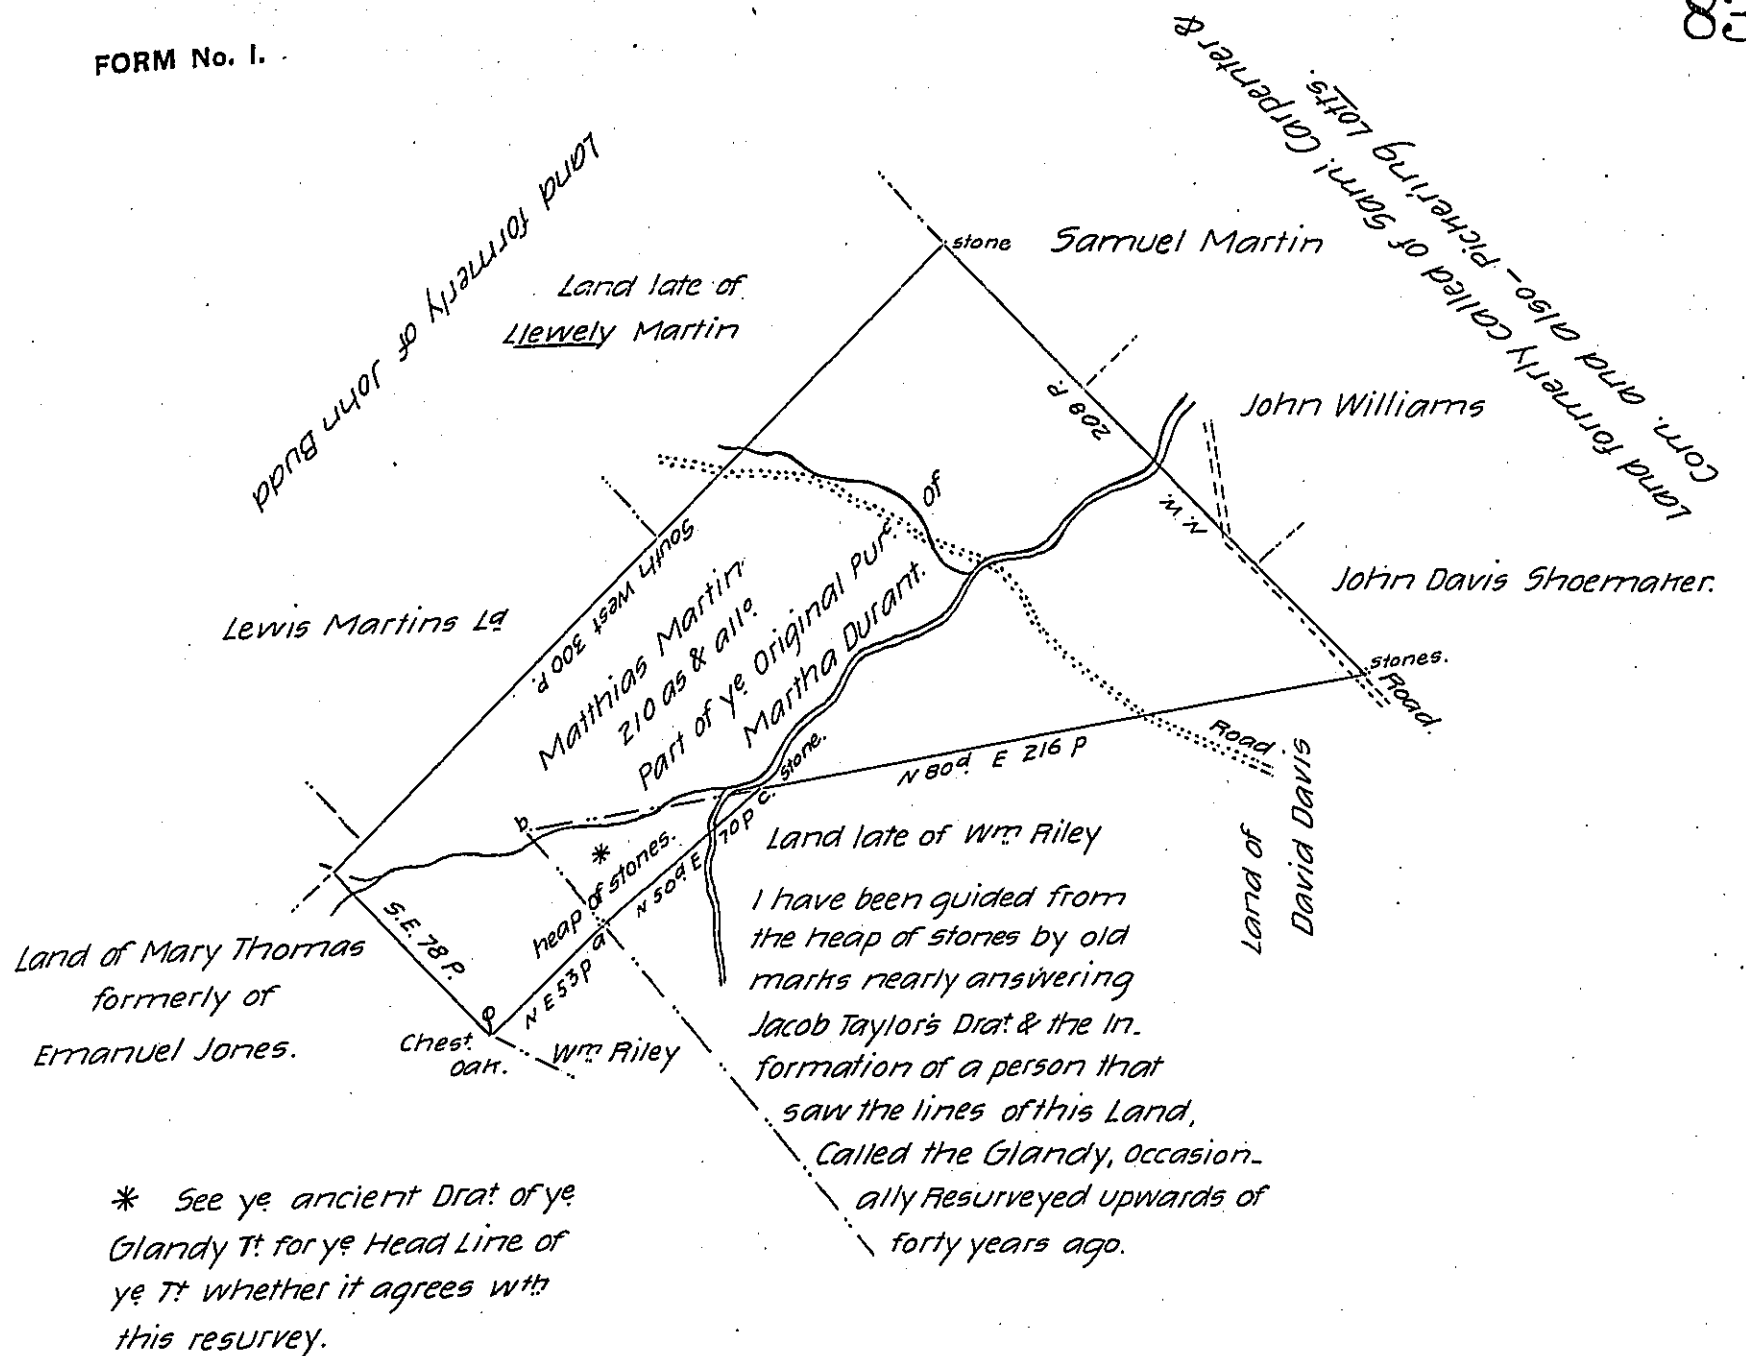 FORM No. 1.
Land formerly of John Budd
Land late of
Llewely Martin
stone
Samuel Martin
Land formerly called of Saml Carpenter &
Com. and also - Pichering Lotts.
209 P.
N. W.
John Williams
John Davis Shoemaker.
stones.
Road.
Lewis Martins Ld
South West 300 P.
Matthias Martin
210 as & allo
Part of ye Original Purc. of
Martha Durant.
stone.
c.
N 80d. E 216 P
Road.
Land of
David Davis
b.
*
heap of stones.
N 50d. E 70 P
a
N E 53 P
S.E. 78 P.
Land of Mary Thomas
formerly of
Emanuel Jones.
Chest.
oak.
Wm Riley
Land late of Wm Riley
I have been guided from
the heap of stones by old
marks nearly answering
Jacob Taylor's Drat & the In-
formation of a person that
saw the lines of this Land,
Called the Glandy, occasion-
ally Resurveyed upwards of
forty years ago.
* See ye ancient Drat of ye
Glandy Tt for ye Head Line of
ye Tt whether it agrees wth
this resurvey.